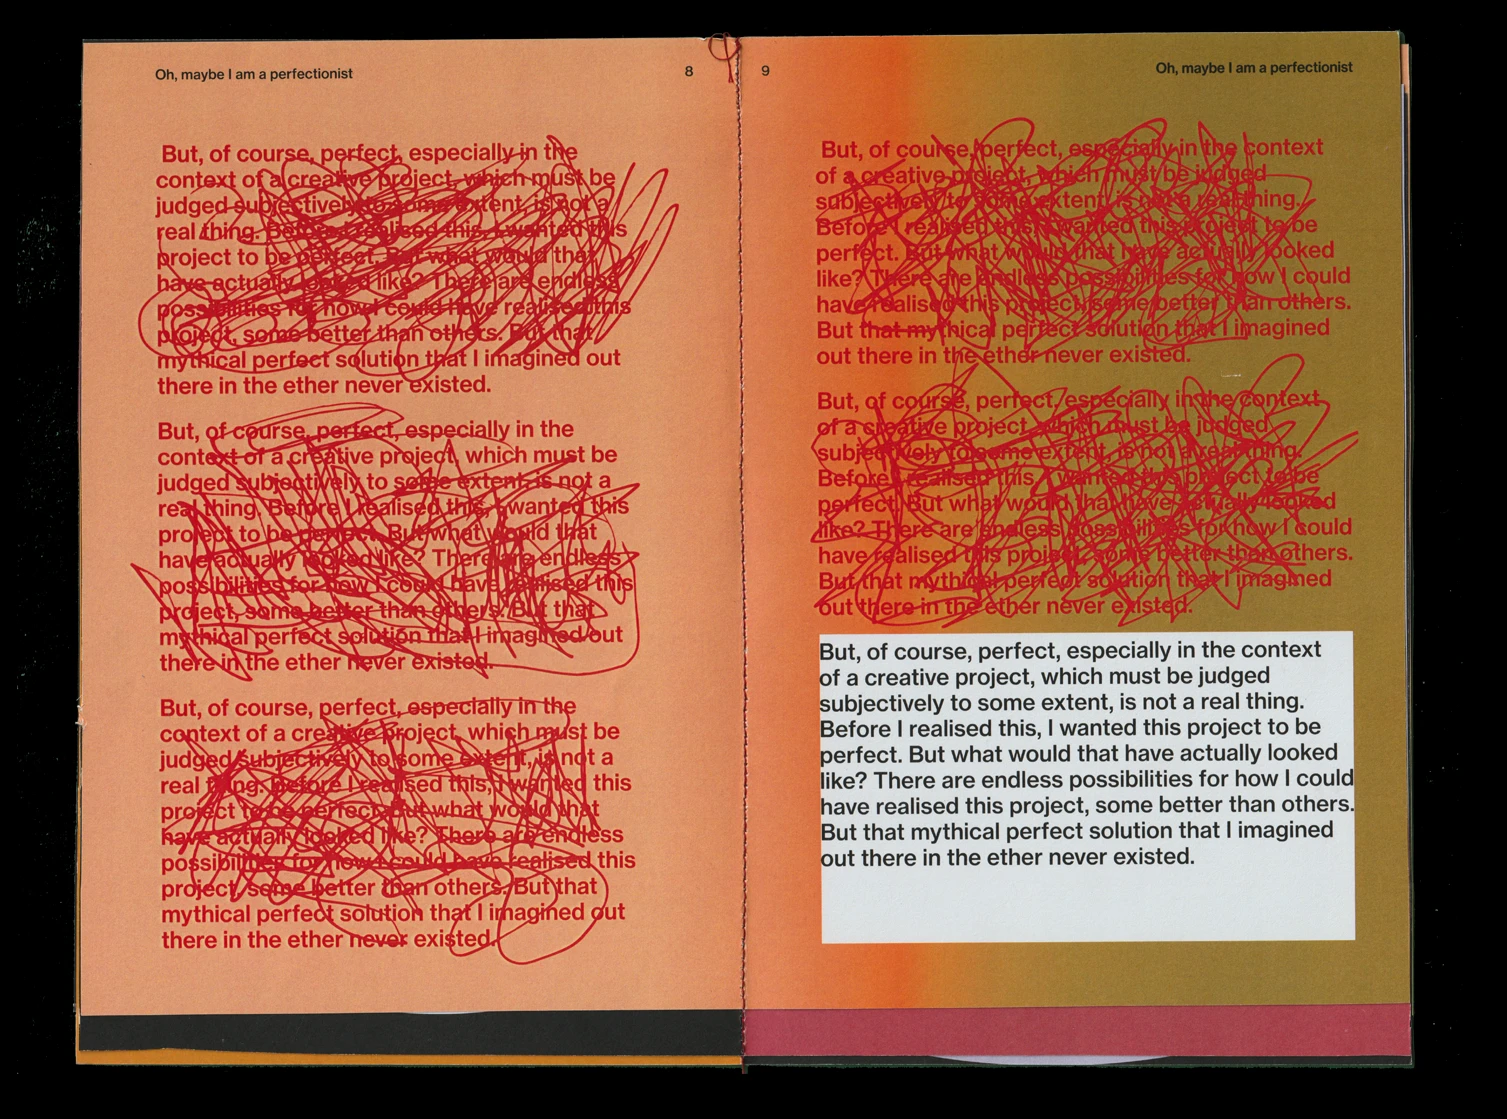 Oh, maybe I am a perfectionist
8
But, of course, perfect, especially in the
context of a creative project, which must be
judged subjectively to some extent, is not a
real thing. Before I realised this, I wanted this
project to be perfect. But what would that
have actually looked like? There are endless
possibilities for how I could have realised this
project, some better than others. But that
mythical perfect solution that I imagined out
there in the ether never existed.
But, of course, perfect, especially in the
context of a creative project, which must be
judged subjectively to some extent, is not a
real thing. Before I realised this, I wanted this
project to be perfect. But what would that
have actually looked like? There are endless
possibilities for how I could have realised this
project, some better than others. But that
mythical perfect solution that I imagined out
there in the ether never existed.
But, of course, perfect, especially in the
context of a creative project, which must be
judged subjectively to some extent, is not a
real thing. Before I realised this, I wanted this
project to be perfect. But what would that
have actually looked like? There are endless
possibilities for how I could have realised this
project, some better than others. But that
mythical perfect solution that I imagined out
there in the ether never existed.
9
Oh, maybe I am a perfectionist
But, of course, perfect, especially in the context
of a creative project, which must be judged
subjectively to some extent, is not a real thing.
Before I realised this, I wanted this project to be
perfect. But what would that have actually looked
like? There are endless possibilities for how I could
have realised this project, some better than others.
But that mythical perfect solution that I imagined
out there in the ether never existed.
But, of course, perfect, especially in the context
of a creative project, which must be judged
subjectively to some extent, is not a real thing.
Before I realised this, I wanted this project to be
perfect. But what would that have actually looked
like? There are endless possibilities for how I could
have realised this project, some better than others.
But that mythical perfect solution that I imagined
out there in the ether never existed.
But, of course, perfect, especially in the context
of a creative project, which must be judged
subjectively to some extent, is not a real thing.
Before I realised this, I wanted this project to be
perfect. But what would that have actually looked
like? There are endless possibilities for how I could
have realised this project, some better than others.
But that mythical perfect solution that I imagined
out there in the ether never existed.